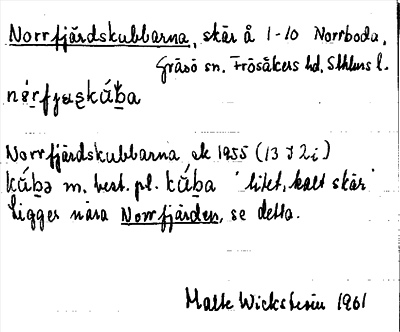 Norrfjärdskubbarna, skär å 1-10 Norrboda,
Gräsö sn. Frösåkers hd, Sthlms l.
Norrfjärdskubbarna ek 1955 (13 J 2i)
m. best. pl. 'litet, kalt skär'
Ligger nära Norrfjärden, se detta.
Malte Wickström 1961